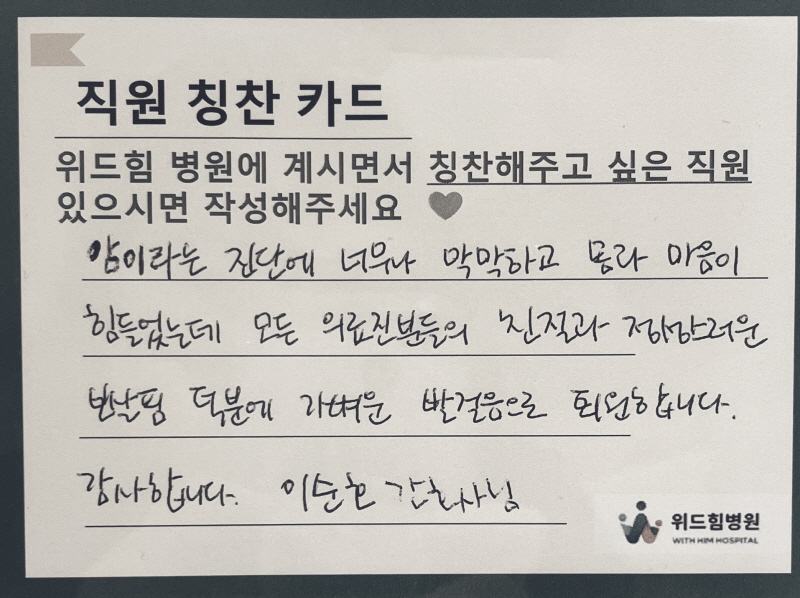 직원 칭찬 카드
위드힘 병원에 계시면서 칭찬해주고 싶은 직원
있으시면 작성해주세요
암이라는 진단에 너무나 막막하고 몸과 마음이
힘들었는데 모든 의료진분들의 친절과 자상스러운
보살핌 덕분에 가벼운 발걸음으로 퇴원합니다.
감사합니다. 이순호 간호사님
위드힘병원
WITH HIM HOSPITAL